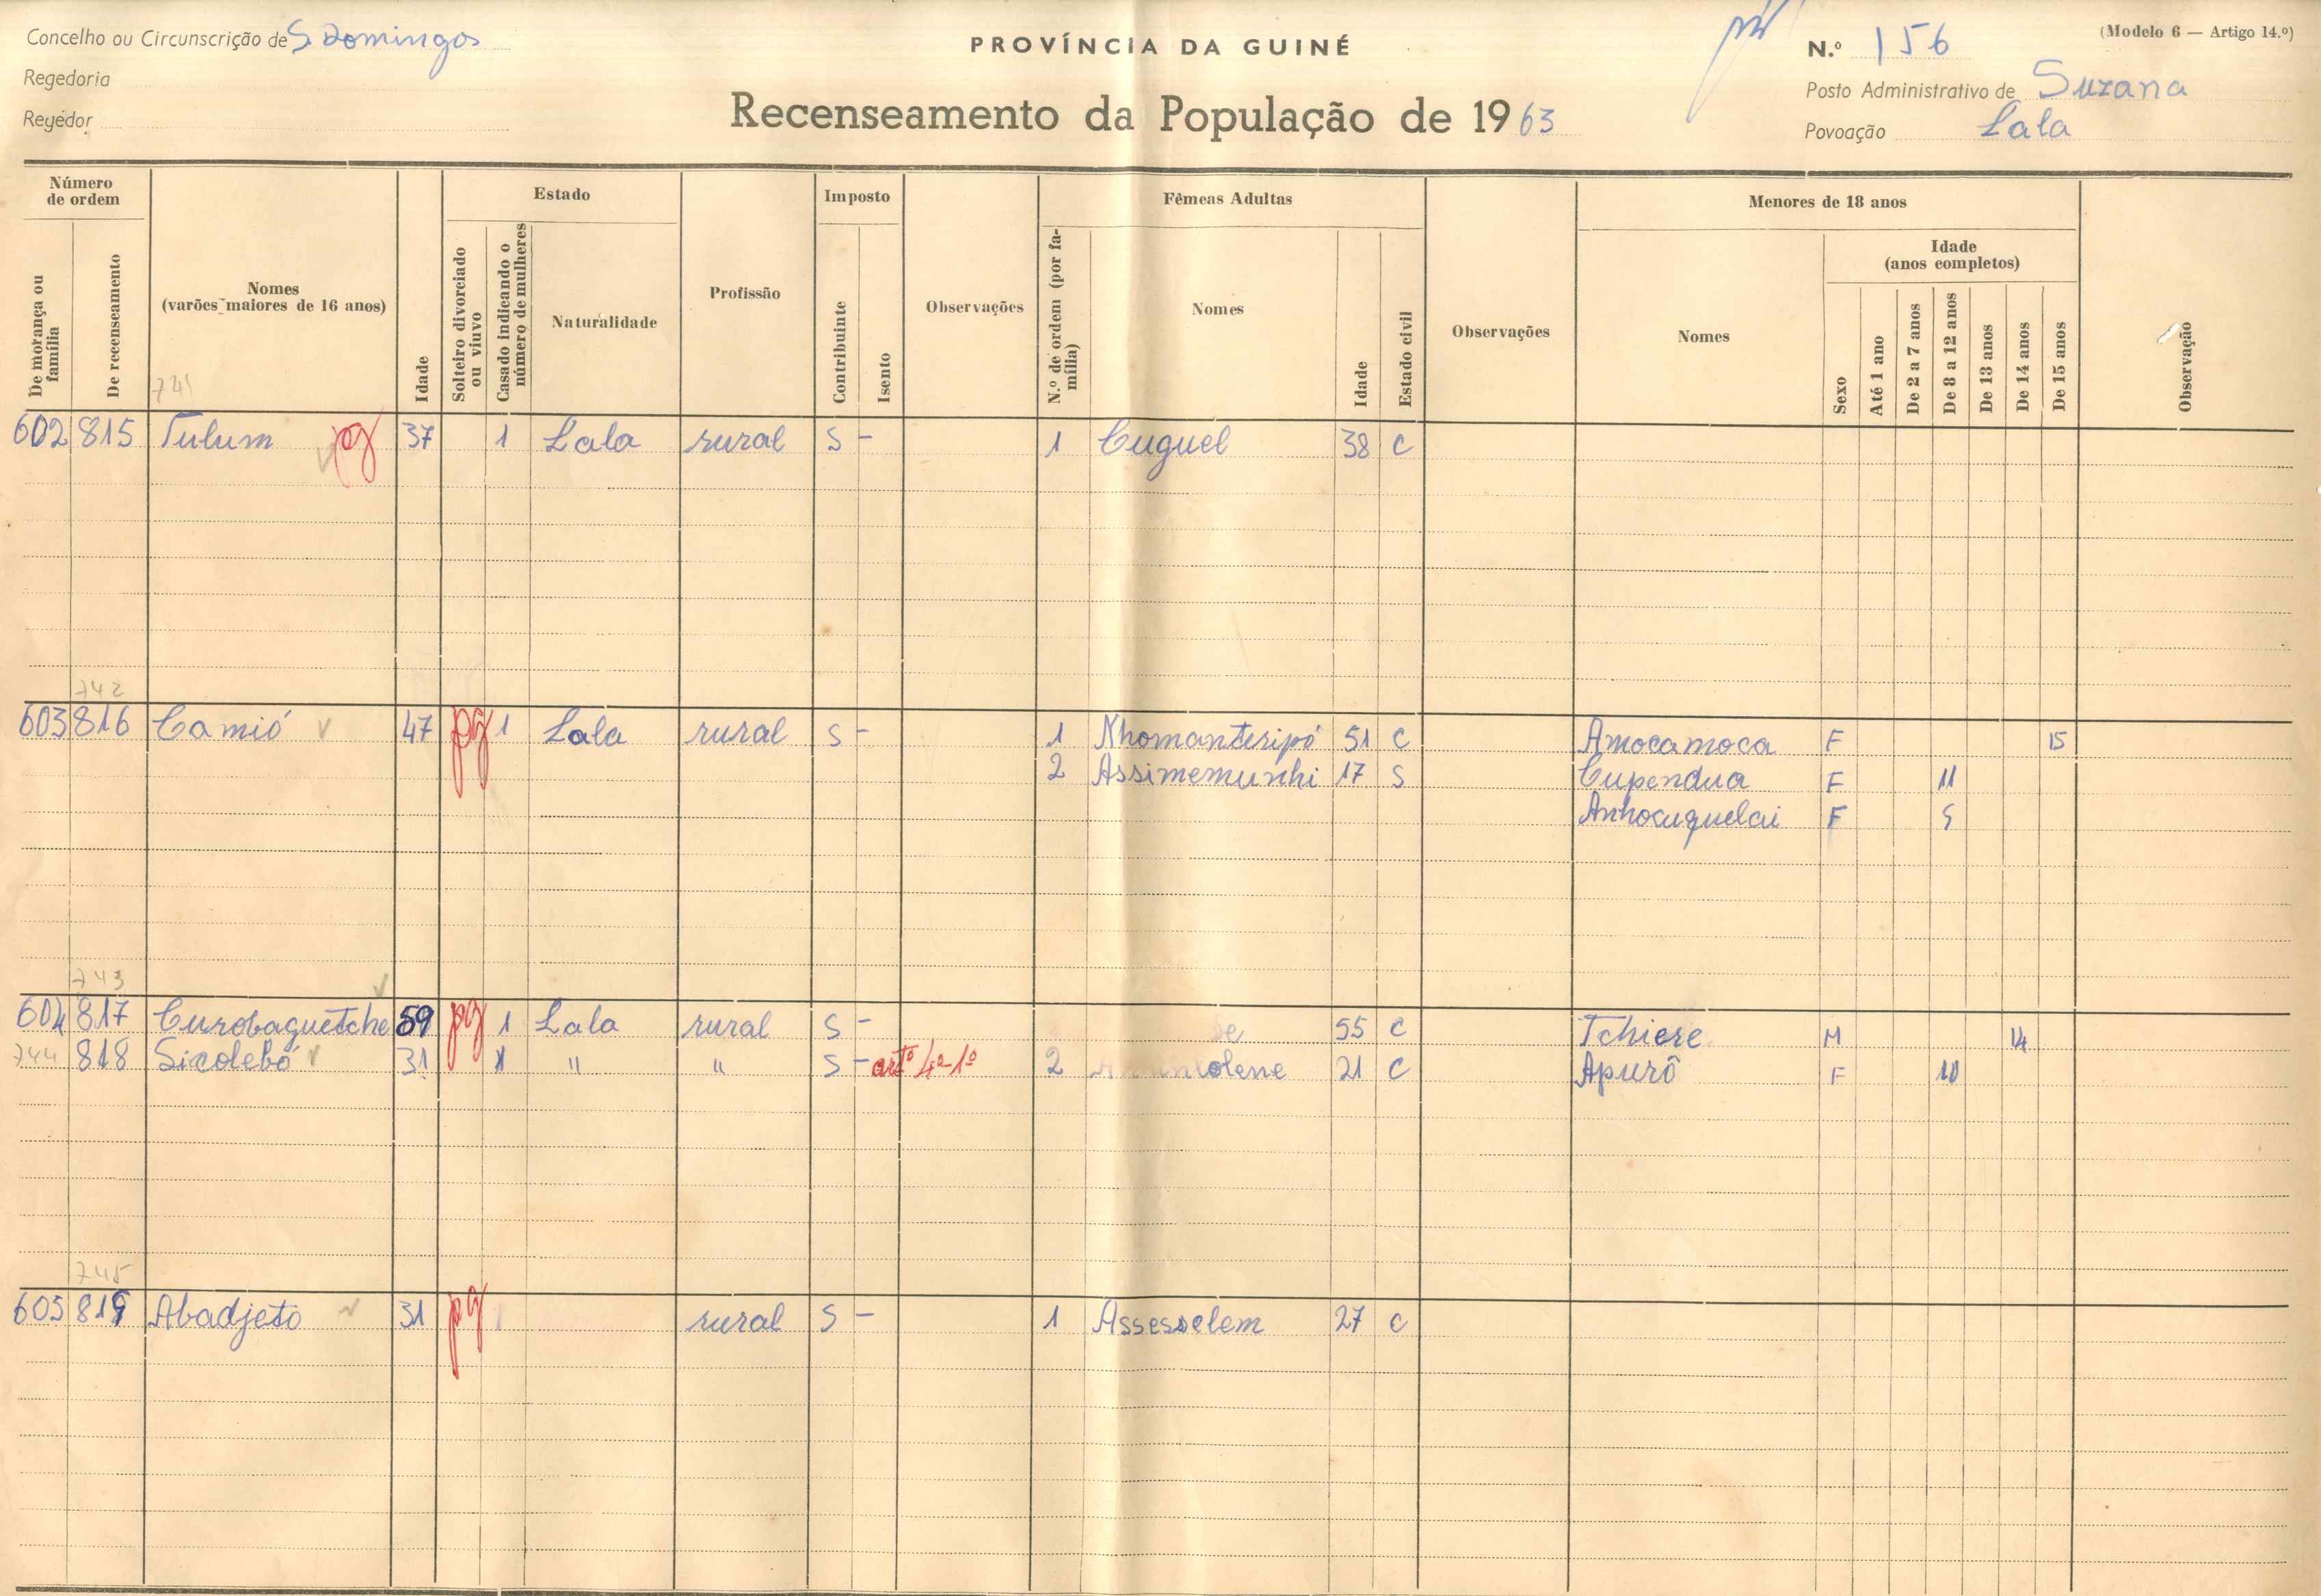 Concelho ou Circunscrição de S. Domingos
PROVÍNCIA DA GUINÉ
N.º 156
(Modelo 6 — Artigo 14.º)
Regedoria
Posto Administrativo de Suzana
Regedor
Recenseamento da População de 1963
Povoação Lala
Número de ordem
Estado
Imposto
Fêmeas Adultas
Menores de 18 anos
De morança ou família
De recenseamento
Nomes (varões maiores de 16 anos)
Idade
Solteiro divorciado ou viuvo
Casado indicando o número de mulheres
Naturalidade
Profissão
Contribuinte
Isento
Observações
N.º de ordem (por família)
Nomes
Idade
Estado civil
Observações
Nomes
Sexo
Idade (anos completos)
Até 1 ano
De 2 a 7 anos
De 8 a 12 anos
De 13 anos
De 14 anos
De 15 anos
Observação
741
602 815 Tulum pg 37 1 Lala rural S - 1 Cuguel 38 C
742
603 816 Camió pg 47 1 Lala rural S - 1 Nhomanteripó 51 C Amocamoca F 15
2 Assimemunhi 17 S Cupendua F 11
Anhocuguelai F
743
604 817 Curobaguetche 59 pg 1 Lala rural S - 55 C Tchiere M 14
744 818 Sicolebó 31 1 " " S - artº 4º-1º 2 21 C Apurô F 10
745
605 819 Abadjeto 31 pg rural S - 1 Assesselem 27 C